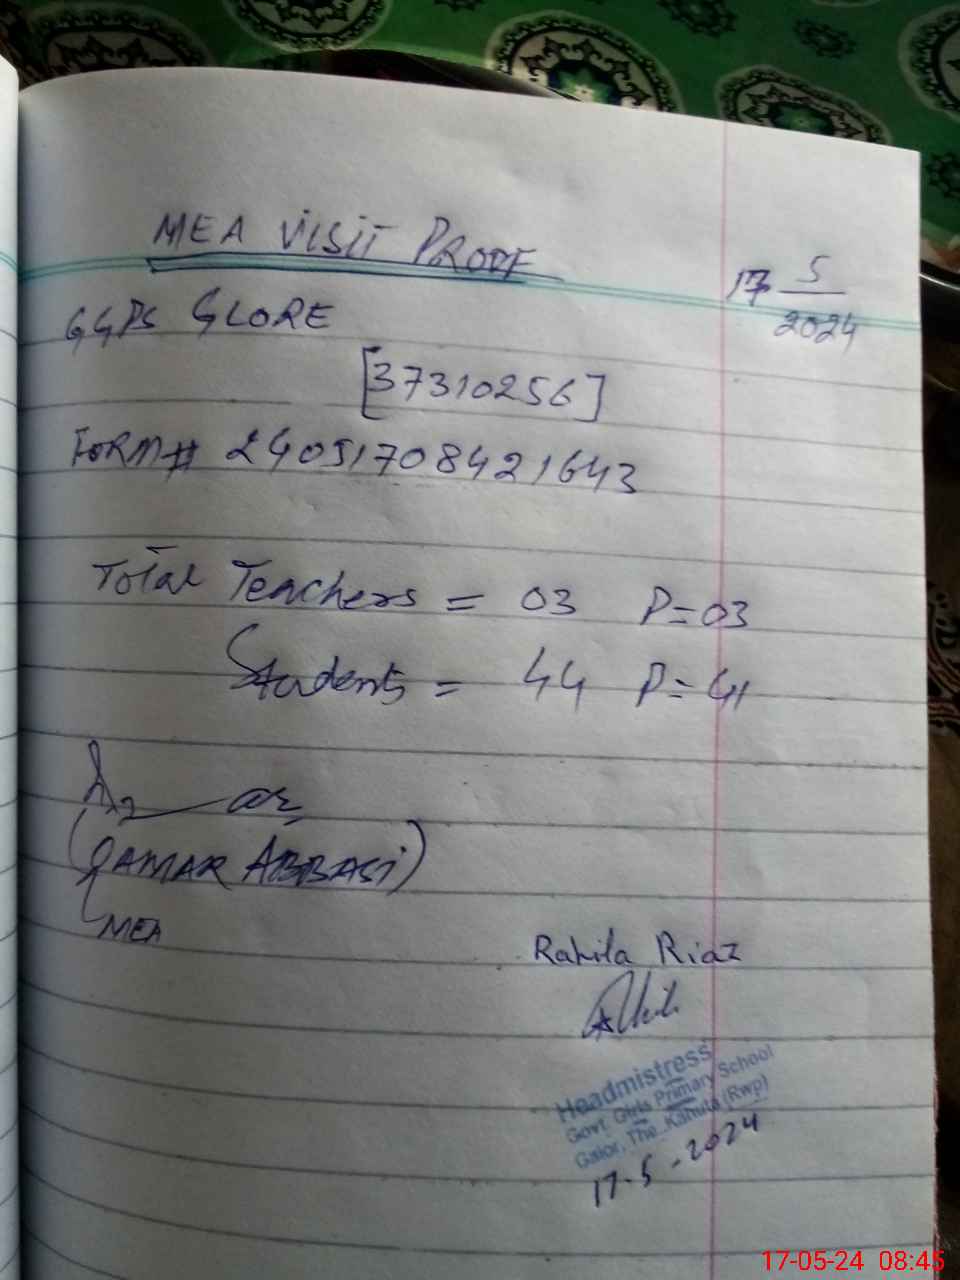 MEA VISIT PROOF
17 5/2024
GGPS GLORE
[37310256]
FORM# 24051708421643
Total Teachers = 03 P=03
Students = 44 P=41
(QAMAR ABBASI)
MEA
Rahila Riaz
Headmistress
Govt. Girls Primary School
Galor, The. Kahuta (Rwp)
17-5-2024
17-05-24 08:45